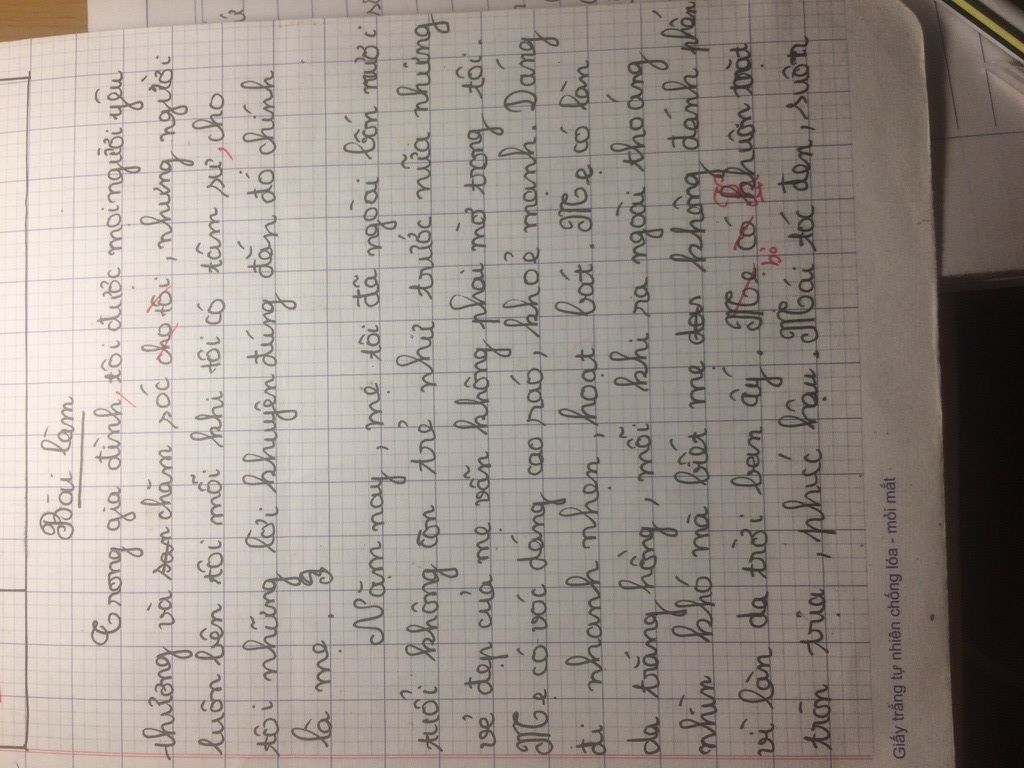 Bài làm
Trong gia đình, tôi được mọi người yêu
thương và son chăm sóc cho tôi, nhưng người
luôn bên tôi mỗi khi tôi có tâm sự, cho
tôi những lời khuyên đúng đắn đó chính
là mẹ.
Năm nay, mẹ tôi đã ngoài bốn mươi
tuổi không còn trẻ như trước nữa nhưng
vẻ đẹp của mẹ vẫn không phai mờ trong tôi.
Mẹ có vóc dáng cao ráo, khoẻ mạnh. Dáng
đi nhanh nhẹn, hoạt bát. Mẹ có làn
da trắng hồng, mỗi khi ra ngoài thoáng
nhìn khó mà biết mẹ không đánh phấn
vì làn da trời ban ấy. Mẹ có khuôn mặt
bỏ
tròn trịa, phúc hậu. Mái tóc đen, suôn
Giấy trắng tự nhiên chống lóa - mỏi mắt